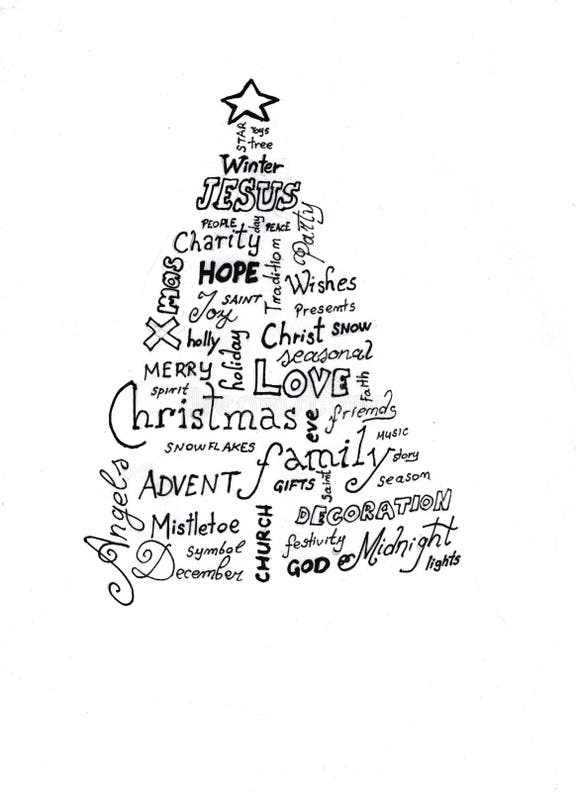 STAR
Toys
tree
Winter
JESUS
PEOPLE
day
PEACE
Party
Charity
Tradition
Xmas
HOPE
Wishes
Joy
SAINT
Presents
holly
holiday
Christ
SNOW
seasonal
MERRY
LOVE
Faith
spirit
Christmas
eve
friends
SNOWFLAKES
family
MUSIC
story
Angels
ADVENT
GIFTS
Saint
season
DECORATION
Mistletoe
CHURCH
festivity
Midnight
symbol
December
GOD
lights